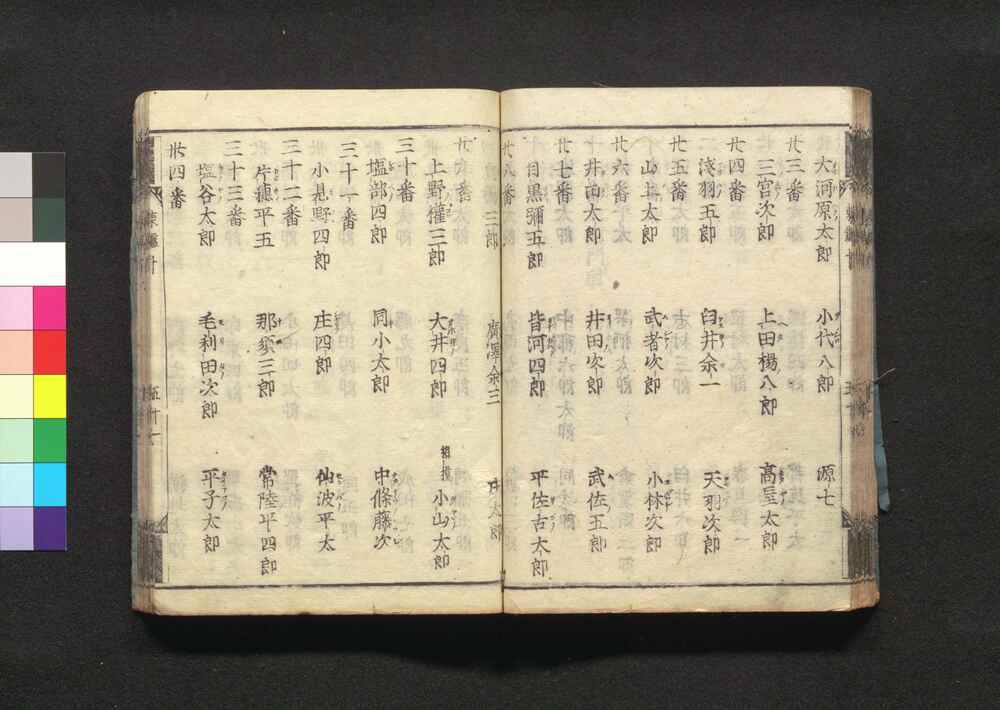 大河原太郎 小代八郎 源七
廿三番
三宮次郎 上田楊八郎 高屋太郎
廿四番
浅羽五郎 臼井余一 天羽次郎
廿五番
山上太郎 武者次郎 小林次郎
廿六番
井出大郎 井田次郎 武佐五郎
廿七番
目黒彌五郎 皆河四郎 平佐古太郎
廿八番
三郎 廣澤余三 太郎
廿九番
上野権三郎 大井四郎 相模小山太郎
三十番
塩部四郎 同小太郎 中條藤次
三十一番
小見野四郎 庄四郎 仙波平太
三十二番
片穂平五 那須三郎 常陸平四郎
三十三番
塩谷太郎 毛利田次郎 平子太郎
卅四番